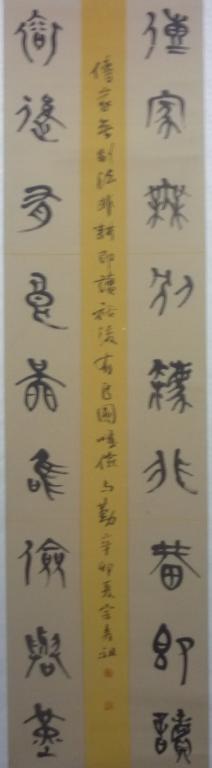 傳家無別法非耕即讀
傳家無别法非耕即讀裕後有良圖唯儉与勤辛卯夏宗祖
裕後有良圖唯儉與勤